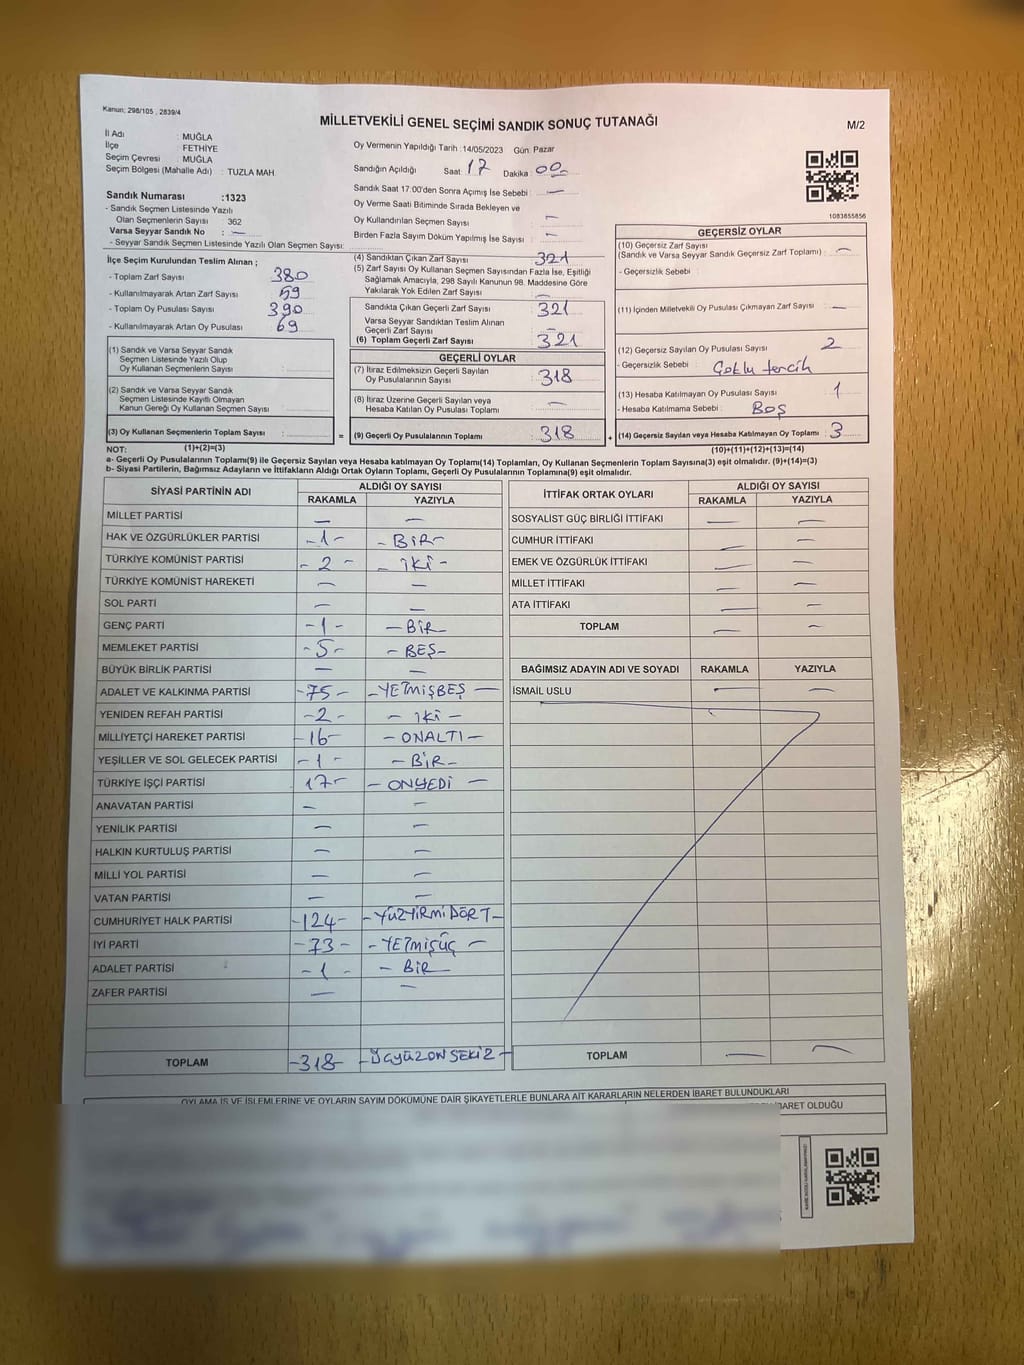 Kanun: 298/105 , 2839/4
MİLLETVEKİLİ GENEL SEÇİMİ SANDIK SONUÇ TUTANAĞI
M/2
İl Adı : MUĞLA
İlçe : FETHİYE
Seçim Çevresi : MUĞLA
Seçim Bölgesi (Mahalle Adı) : TUZLA MAH.
Sandık Numarası :1323
- Sandık Seçmen Listesinde Yazılı
Olan Seçmenlerin Sayısı 362
Varsa Seyyar Sandık No : —
- Seyyar Sandık Seçmen Listesinde Yazılı Olan Seçmen Sayısı:
Oy Vermenin Yapıldığı Tarih :14/05/2023 Gün: Pazar
Sandığın Açıldığı Saat 17 Dakika : 00
Sandık Saat 17:00'den Sonra Açımış İse Sebebi : —
Oy Verme Saati Bitiminde Sırada Bekleyen ve
Oy Kullandırılan Seçmen Sayısı : —
Birden Fazla Sayım Döküm Yapılmış İse Sayısı : —
1083855856
İlçe Seçim Kurulundan Teslim Alınan ;
- Toplam Zarf Sayısı : 380
- Kullanılmayarak Artan Zarf Sayısı : 59
- Toplam Oy Pusulası Sayısı : 390
- Kullanılmayarak Artan Oy Pusulası : 69
(1) Sandık ve Varsa Seyyar Sandık
Seçmen Listesinde Yazılı Olup
Oy Kullanan Seçmenlerin Sayısı :
(2) Sandık ve Varsa Seyyar Sandık
Seçmen Listesinde Kayıtlı Olmayan
Kanun Gereği Oy Kullanan Seçmen Sayısı :
(3) Oy Kullanan Seçmenlerin Toplam Sayısı :
(4) Sandıktan Çıkan Zarf Sayısı : 321
(5) Zarf Sayısı Oy Kullanan Seçmen Sayısından Fazla İse, Eşitliği
Sağlamak Amacıyla, 298 Sayılı Kanunun 98. Maddesine Göre
Yakılarak Yok Edilen Zarf Sayısı : —
Sandıkta Çıkan Geçerli Zarf Sayısı : 321
Varsa Seyyar Sandıktan Teslim Alınan
Geçerli Zarf Sayısı : —
(6) Toplam Geçerli Zarf Sayısı : 321
GEÇERLİ OYLAR
(7) İtiraz Edilmeksizin Geçerli Sayılan
Oy Pusulalarının Sayısı : 318
(8) İtiraz Üzerine Geçerli Sayılan veya
Hesaba Katılan Oy Pusulası Toplamı : —
= (9) Geçerli Oy Pusulalarının Toplamı : 318
GEÇERSİZ OYLAR
(10) Geçersiz Zarf Sayısı
(Sandık ve Varsa Seyyar Sandık Geçersiz Zarf Toplamı) : —
- Geçersizlik Sebebi :
(11) İçinden Milletvekili Oy Pusulası Çıkmayan Zarf Sayısı : —
(12) Geçersiz Sayılan Oy Pusulası Sayısı : 2
- Geçersizlik Sebebi : Çoklu tercih
(13) Hesaba Katılmayan Oy Pusulası Sayısı : 1
- Hesaba Katılmama Sebebi : Boş
+ (14) Geçersiz Sayılan veya Hesaba Katılmayan Oy Toplamı : 3
NOT: (1)+(2)=(3) (10)+(11)+(12)+(13)=(14)
a- Geçerli Oy Pusulalarının Toplamı(9) ile Geçersiz Sayılan veya Hesaba katılmayan Oy Toplamı(14) Toplamları, Oy Kullanan Seçmenlerin Toplam Sayısına(3) eşit olmalıdır. (9)+(14)=(3)
b- Siyasi Partilerin, Bağımsız Adayların ve İttifakların Aldığı Ortak Oyların Toplamı, Geçerli Oy Pusulalarının Toplamına(9) eşit olmalıdır.
SİYASİ PARTİNİN ADI ALDIĞI OY SAYISI
RAKAMLA YAZIYLA
MİLLET PARTİSİ — —
HAK VE ÖZGÜRLÜKLER PARTİSİ -1- - BİR-
TÜRKİYE KOMÜNİST PARTİSİ - 2 - - İKİ -
TÜRKİYE KOMÜNİST HAREKETİ — —
SOL PARTİ — —
GENÇ PARTİ -1- - BİR
MEMLEKET PARTİSİ -5- - BEŞ-
BÜYÜK BİRLİK PARTİSİ — —
ADALET VE KALKINMA PARTİSİ -75- - YETMİŞBEŞ —
YENİDEN REFAH PARTİSİ -2- - İKİ -
MİLLİYETÇİ HAREKET PARTİSİ -16- - ONALTI -
YEŞİLLER VE SOL GELECEK PARTİSİ -1- - BİR -
TÜRKİYE İŞÇİ PARTİSİ 17- - ONYEDİ -
ANAVATAN PARTİSİ — —
YENİLİK PARTİSİ — —
HALKIN KURTULUŞ PARTİSİ — —
MİLLİ YOL PARTİSİ — —
VATAN PARTİSİ — —
CUMHURİYET HALK PARTİSİ -124- - YÜZYİRMİDÖRT -
İYİ PARTİ -73- - YETMİŞÜÇ -
ADALET PARTİSİ -1- - BİR -
ZAFER PARTİSİ — —
TOPLAM -318- - ÜÇYÜZONSEKİZ -
İTTİFAK ORTAK OYLARI ALDIĞI OY SAYISI
RAKAMLA YAZIYLA
SOSYALİST GÜÇ BİRLİĞİ İTTİFAKI — —
CUMHUR İTTİFAKI — —
EMEK VE ÖZGÜRLÜK İTTİFAKI — —
MİLLET İTTİFAKI — —
ATA İTTİFAKI — —
TOPLAM — —
BAĞIMSIZ ADAYIN ADI VE SOYADI RAKAMLA YAZIYLA
İSMAİL USLU — —
TOPLAM — —
OYLAMA İŞ VE İŞLEMLERİNE VE OYLARIN SAYIM DÖKÜMÜNE DAİR ŞİKAYETLERLE BUNLARA AİT KARARLARIN NELERDEN İBARET BULUNDUKLARI
İBARET OLDUĞU